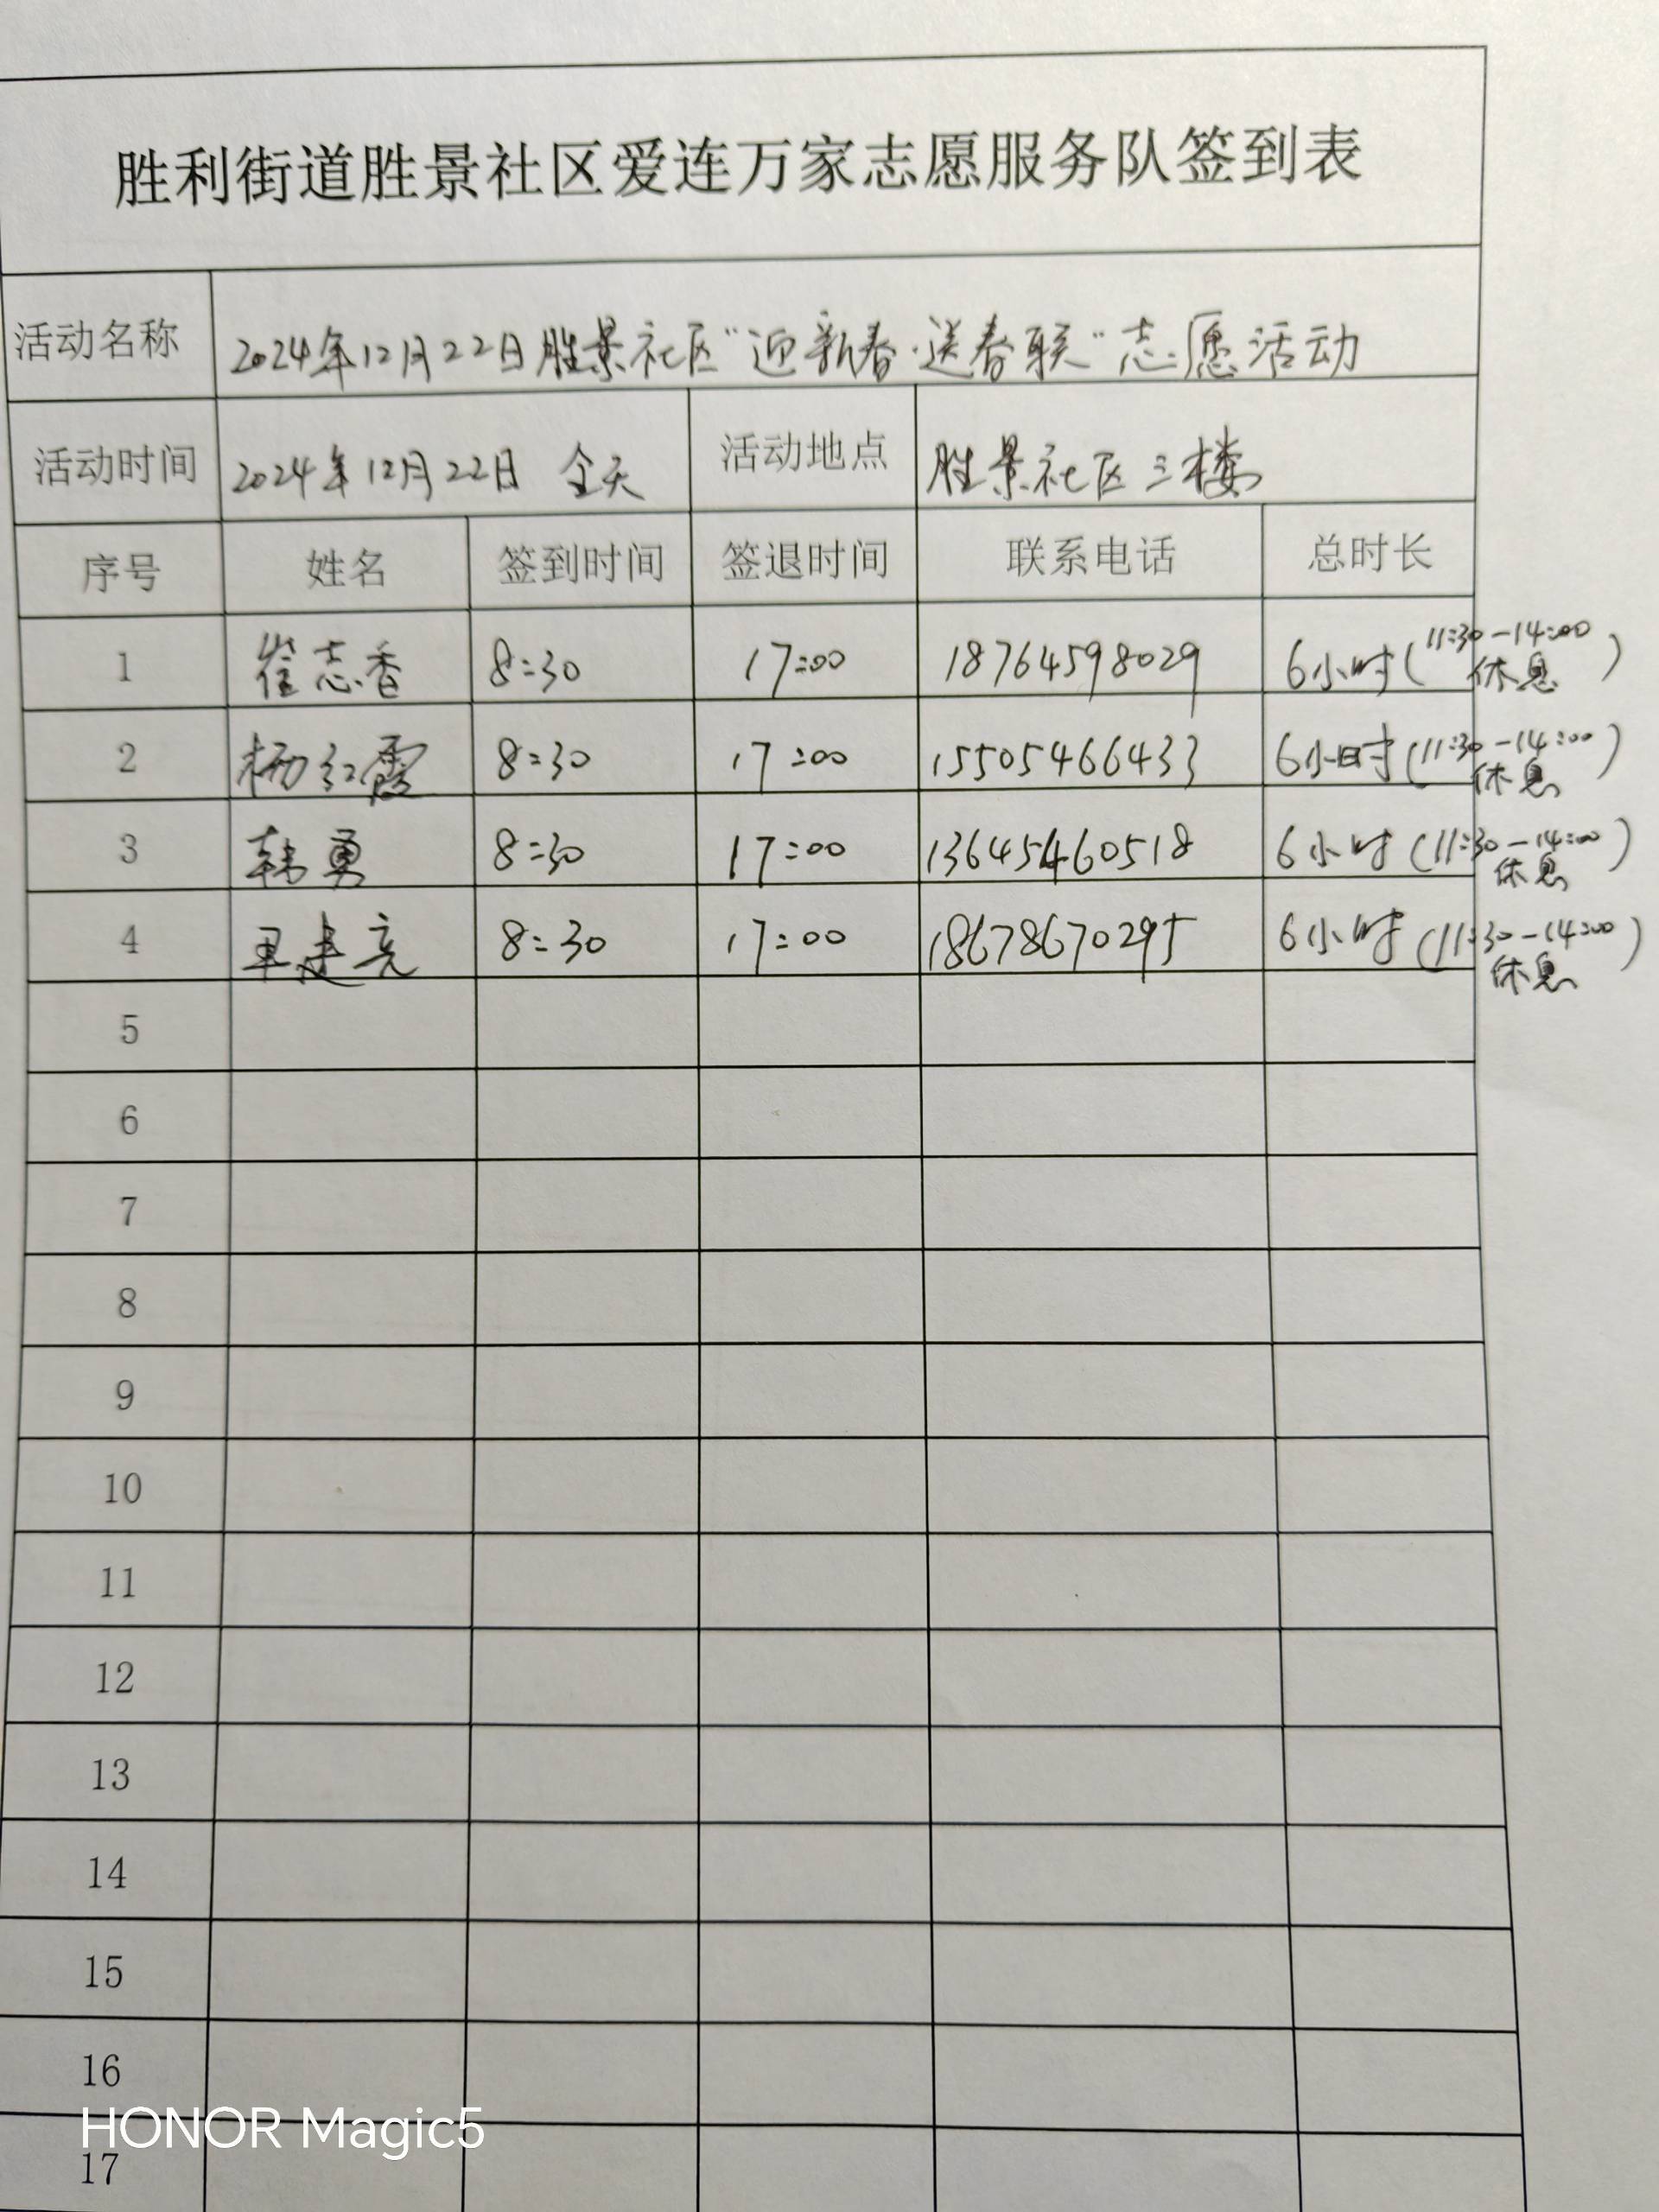 胜利街道胜景社区爱连万家志愿服务队签到表
活动名称 2024年12月22日胜景社区"迎新春·送春联"志愿活动
活动时间 2024年12月22日 全天 活动地点 胜景社区三楼
序号 姓名 签到时间 签退时间 联系电话 总时长
1 崔志香 8:30 17:00 18764598029 6小时(11:30-14:00休息)
2 杨红霞 8:30 17:00 15505466433 6小时(11:30-14:00休息)
3 韩勇 8:30 17:00 13645460518 6小时(11:30-14:00休息)
4 王建亮 8:30 17:00 18678670295 6小时(11:30-14:00休息)
5
6
7
8
9
10
11
12
13
14
15
16
HONOR Magic5
17